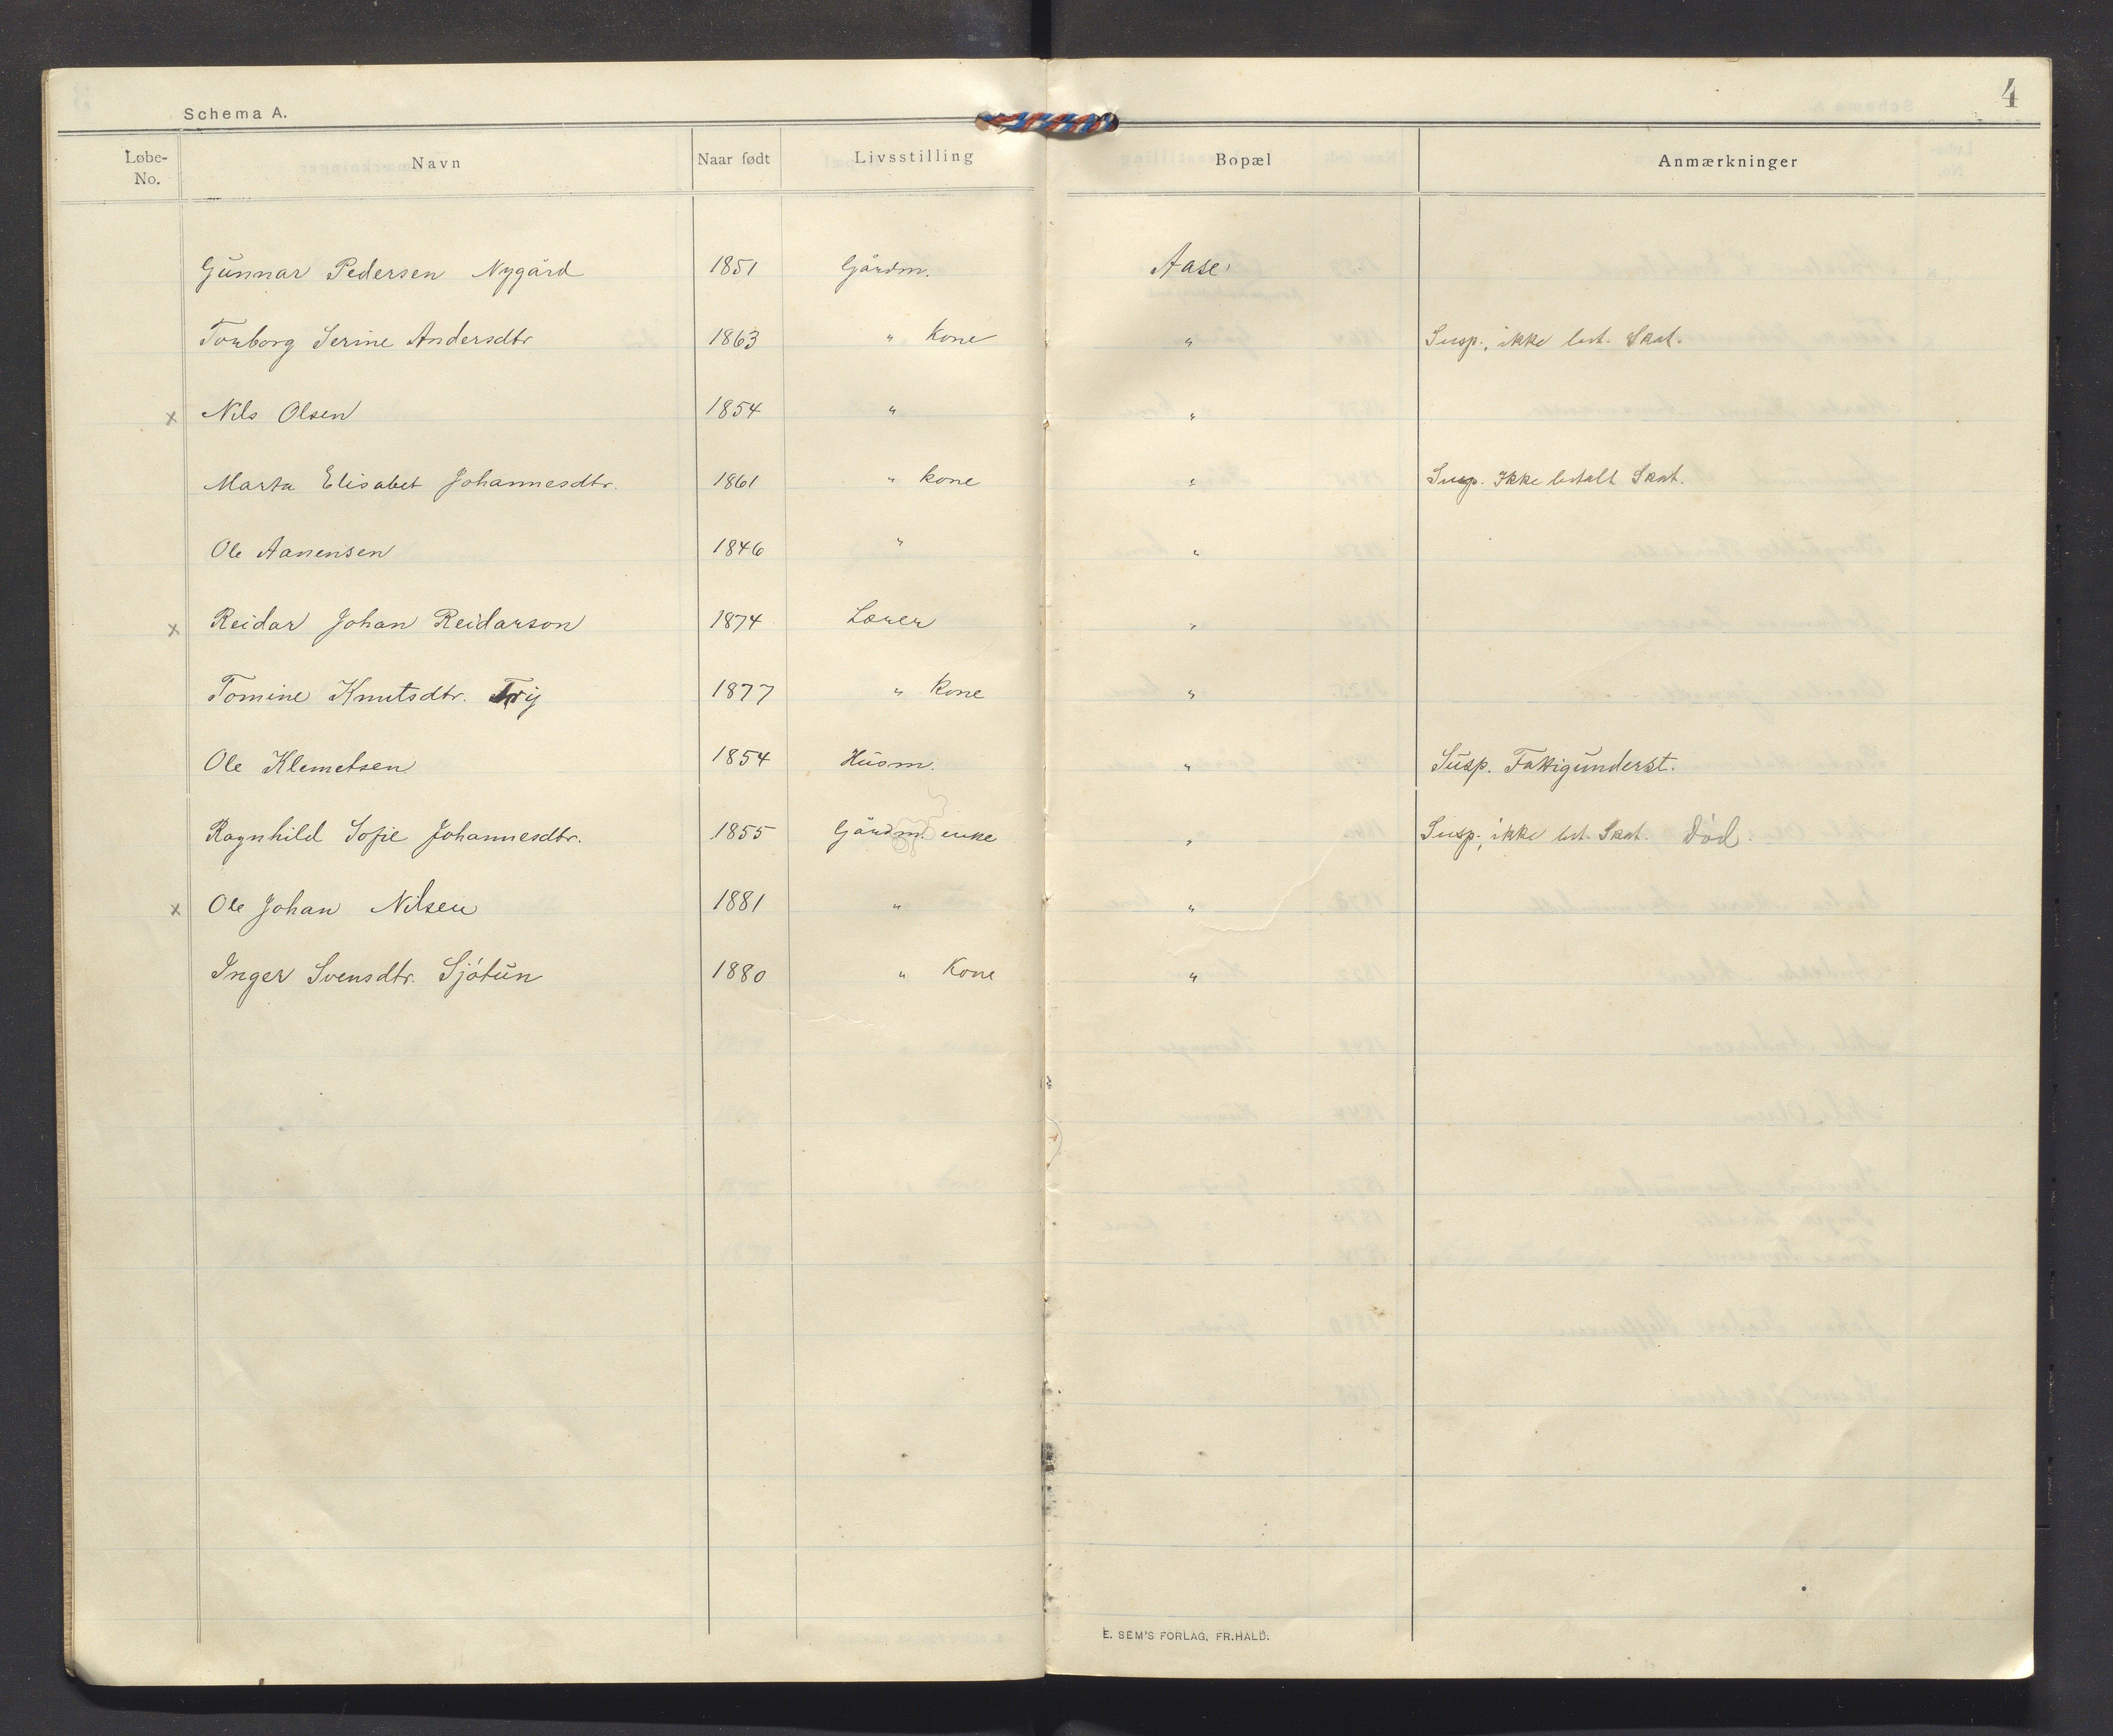 Schema A.
4
Løbe-No. Navn Naar født Livsstilling Bopæl Anmærkninger
Gunnar Pedersen Nygård 1851 Gårdm. Aase
Torborg Serine Andersdtr 1863 " Kone " Susp., ikke bet. Skat.
x Nils Olsen 1854 " "
Marta Elisabet Johannesdtr. 1861 " kone " Susp. Ikke betalt Skat.
Ole Aanensen 1846 " "
x Reidar Johan Reidarson 1874 Lærer "
Tomine Knutsdtr. 1877 " Kone "
Ole Klemetsen 1854 Husm. " Susp. Fattigunderst.
Ragnhild Sofie Johannesdtr. 1855 Gårdm. enke " Susp., ikke bet. Skat. Död.
x Ole Johan Nilsen 1881 " "
Inger Svensdtr. Sjötun 1880 " Kone "
E. SEM'S FORLAG, FR.HALD.